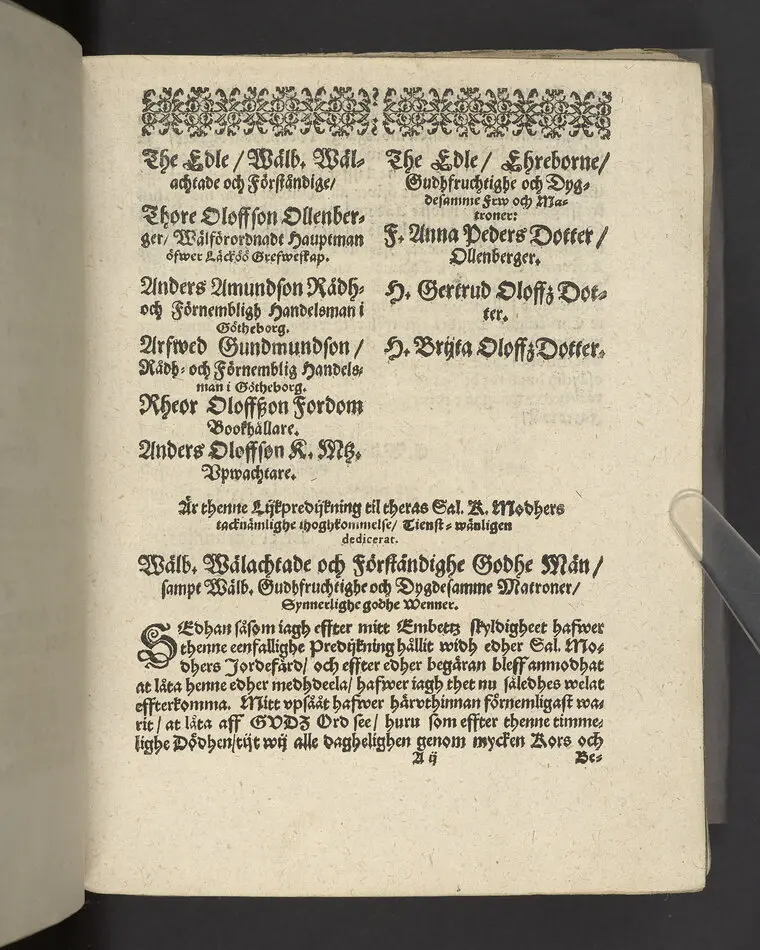 The Edle / Wälb. Wäl-
achtade och Förståndige/
Thore Oloffson Ollenber-
ger/ Wälförordnadt Hauptman
öfwer Läcköö Grefweskap.
Anders Amundson Rådh-
och Förnembligh Handelsman i
Götheborg.
Arfwed Gundmundson /
Rådh- och Förnemblig Handels-
man i Götheborg.
Rheor Oloffßon Fordom
Bookhållare.
Anders Oloffson K. Mtz.
Vpwachtare.
The Edle / Ehreborne/
Gudhfruchtighe och Dyg-
desamme Frw och Ma-
troner:
F. Anna Peders Dotter /
Ollenberger.
H. Gertrud Oloffz Dot-
ter.
H. Bryta Oloffz Dotter.
Är thenne Lijkpredijkning til theras Sal. K. Modhers
tacknämlighe ihoghkommelse/ Tienst-wänligen
dedicerat.
Wälb. Wälachtade och Förståndighe Godhe Män /
sampt Wälb. Gudhfruchtighe och Dygdesamme Matroner/
Synnerlighe godhe Wenner.
SEdhan såsom iagh effter mitt Embetz skyldigheet hafwer
thenne eenfallighe Predijkning hållit widh edher Sal. Mo-
dhers Jordefärd/ och effter edher begäran bleff anmodhat
at låta henne edher medhdeela/ hafwer iagh thet nu såledhes welat
effterkomma. Mitt vpsåått hafwer härvthinnan förnemligast wa-
rit / at låta aff GVDZ Ord see/ huru som effter thenne timme-
lighe Dödhen/tijt wij alle daghelighen genom mycken Kors och
A ij
Be-